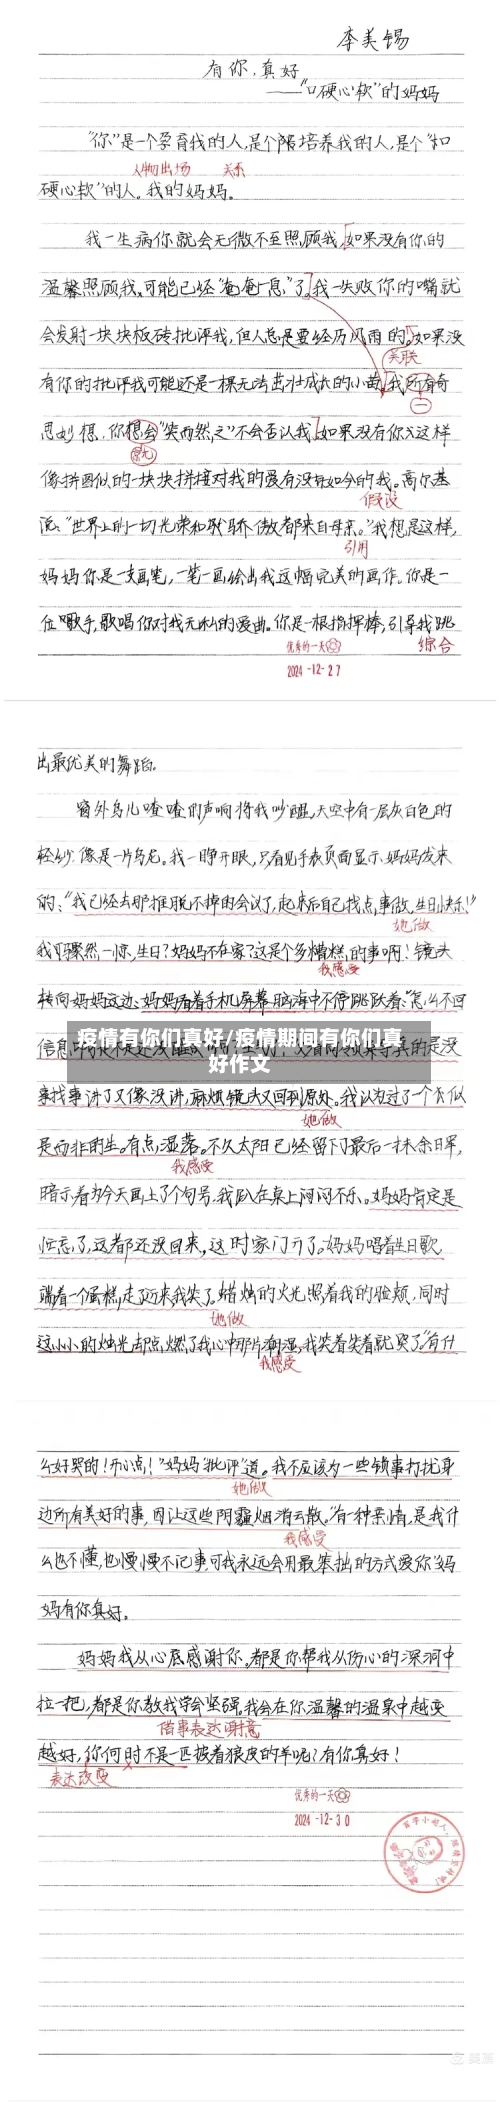 李美锡
有你,真好
——“口硬心软”的妈妈
“你”是一个孕育我的人,是个陪培养我的人,是个“口
人物出场 关系
硬心软”的人。我的妈妈。
我一生病你就会无微不至照顾我,如果没有你的
温馨照顾我,可能已经“奄奄一息”了,我一失败你的嘴就
会发射一块块板砖批评我,但人总是要经历风雨的。如果没
关联
有你的批评我可能还是一棵无法茁壮成长的小苗,我所有奇
思妙想,你想会“笑而然之”不会否认我,如果没有你这样
像拼图似的一块块拼接对我的爱有没有如今的我。高尔基
假设
说:“世界上的一切光荣和骄傲都来自母亲。”我想是这样,
引用
妈妈你是一支画笔,一笔一画绘出我这幅完美的画作。你是一
位歌手,歌唱你对我无私的爱曲。你是一根指挥棒,引导我跳
综合
优秀的一天
2024-12-27
出最优美的舞蹈。
窗外鸟儿喳喳的声响将我吵醒,天空中有一层灰白色的
轻纱,像是一片乌龙。我一睁开眼,只看见手表页面显示妈妈发来
的:“我已经去那推脱不掉的会议了,起来后自己找点事做,生日快乐!”
她做
我骤然一惊,生日?妈妈不在家?这是个多糟糕的事啊!镜头
我感受
转向妈妈这边:妈妈看着手机屏幕脑海中不停跳跃着:“怎么不回
信息
疫情有你们真好/疫情期间有你们真
好作文
事找事讲了又像没讲,麻烦镜头又回到原处。我认为过了一个大似
她做
是而非的生。有点湿落。不久太阳已经留下了最后一抹余日军,
我感受
暗示着为今天画上了个句号,我趴在桌上闷闷不乐。妈妈肯定是
忙忘了,这都还没回来,这时家门开了。妈妈唱着生日歌
端着一个蛋糕,走了近来,我笑了,蜡烛的火光照着我的脸颊,同时
她做
这小小的烛光却点燃了我心中那片潮湿,我笑着笑着就哭了“有什
我感受
么好哭的!开心点!”妈妈“批评”道。我不应该为一些锁事打扰身
她做
边所有美好的事,因让这些阴霾烟消云散。“有一种亲情,是我什
我感受
么也不懂,也慢慢不记事,可我永远会用最笨拙的方式爱你”妈
妈有你真好。
妈妈我从心底感谢你。都是你帮我从伤心的深河中
拉一把,都是你教我学会坚强。我会在你温馨的温泉中越变
借事表达谢意
越好,你何时不是一匹披着狼皮的羊呢?有你真好!
表达改变
优秀的一天
2024-12-30
美篇